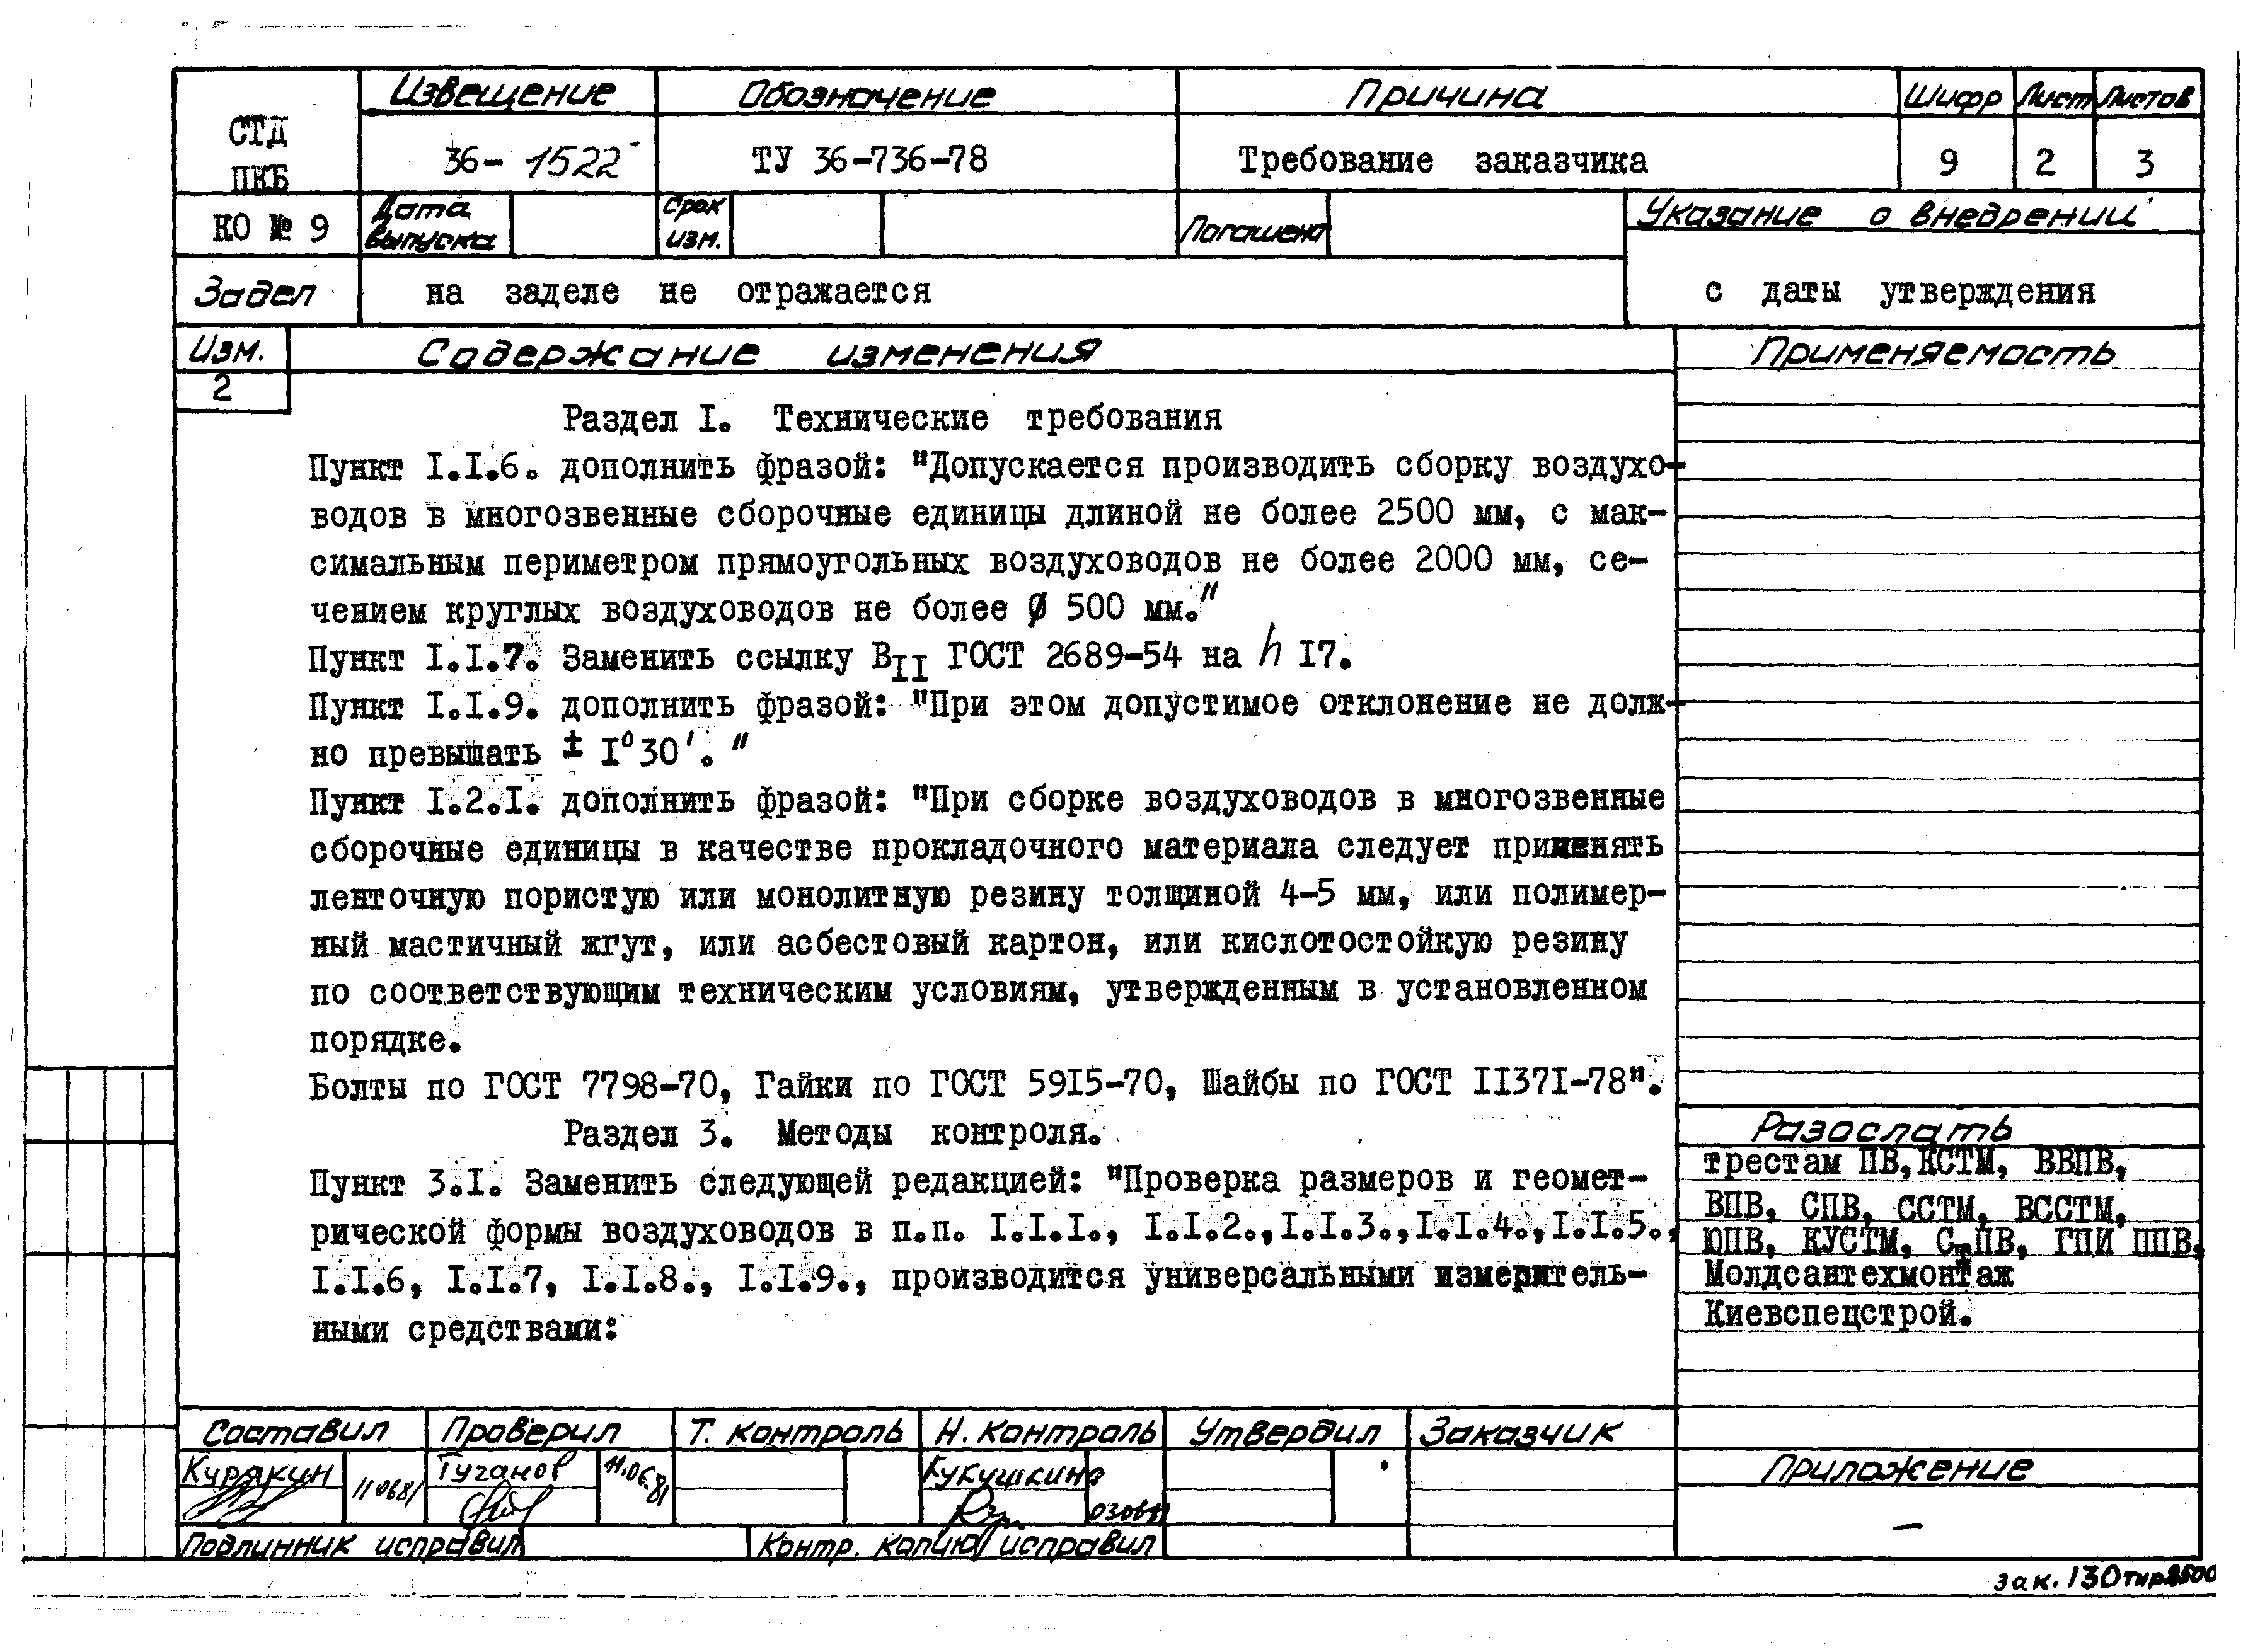 СТД
ПКБ
Извещение
Обозначение
Причина
Шифр
Лист
Листов
36- 1522
ТУ 36-736-78
Требование заказчика
9
2
3
КО № 9
Дата выпуска
Срок изм.
Погашено
Указание о внедрении
Задел
на заделе не отражается
с даты утверждения
Изм.
Содержание изменения
Применяемость
2
Раздел I. Технические требования
Пункт I.I.6. дополнить фразой: "Допускается производить сборку воздухо-
водов в многозвенные сборочные единицы длиной не более 2500 мм, с мак-
симальным периметром прямоугольных воздуховодов не более 2000 мм, се-
чением круглых воздуховодов не более Ø 500 мм."
Пункт I.I.7. Заменить ссылку В₁₁ ГОСТ 2689-54 на h I7.
Пункт I.I.9. дополнить фразой: "При этом допустимое отклонение не долж-
но превышать ± I°30'. "
Пункт I.2.I. дополнить фразой: "При сборке воздуховодов в многозвенные
сборочные единицы в качестве прокладочного материала следует применять
ленточную пористую или монолитную резину толщиной 4-5 мм, или полимер-
ный мастичный жгут, или асбестовый картон, или кислотостойкую резину
по соответствующим техническим условиям, утвержденным в установленном
порядке.
Болты по ГОСТ 7798-70, Гайки по ГОСТ 59I5-70, Шайбы по ГОСТ II37I-78".
Раздел 3. Методы контроля.
Пункт 3.I. Заменить следующей редакцией: "Проверка размеров и геомет-
рической формы воздуховодов в п.п. I.I.I., I.I.2.,I.I.3.,I.I.4.,I.I.5.,
I.I.6, I.I.7, I.I.8., I.I.9., производится универсальными измеритель-
ными средствами:
Разослать
трестам ПВ,КСТМ, ВВПВ,
ВПВ, СПВ, ССТМ, ВССТМ,
ЮПВ, КУСТМ, СтПВ, ГПИ ППВ,
Молдсантехмонтаж
Киевспецстрой.
Составил
Проверил
Т. контроль
Н. контроль
Утвердил
Заказчик
Курякин
110681
Туганов
11.06.81
Кукушкина
Приложение
–
Подлинник исправил
Контр. копию исправил
зак. 130 тир 2500